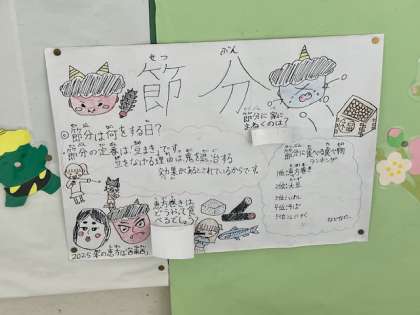 せつ ぶん
節分
節分に家に
まねくのは?
◎節分は何をする日?
節分の定番は「豆まき」です。
豆をなげる理由は、鬼を退治する
効果があるとされているからです。
恵方巻きは
どうやって食
べるでしょう?
2025年の恵方は「西南西」
節分に食べる食べ物
ランキング
1位 恵方巻き
2位 大豆
3位 いわし
4位 そば
5位 こんにゃく